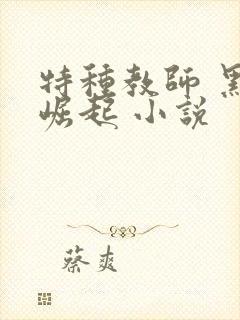 特種教師
崛起 小說
蔡爽